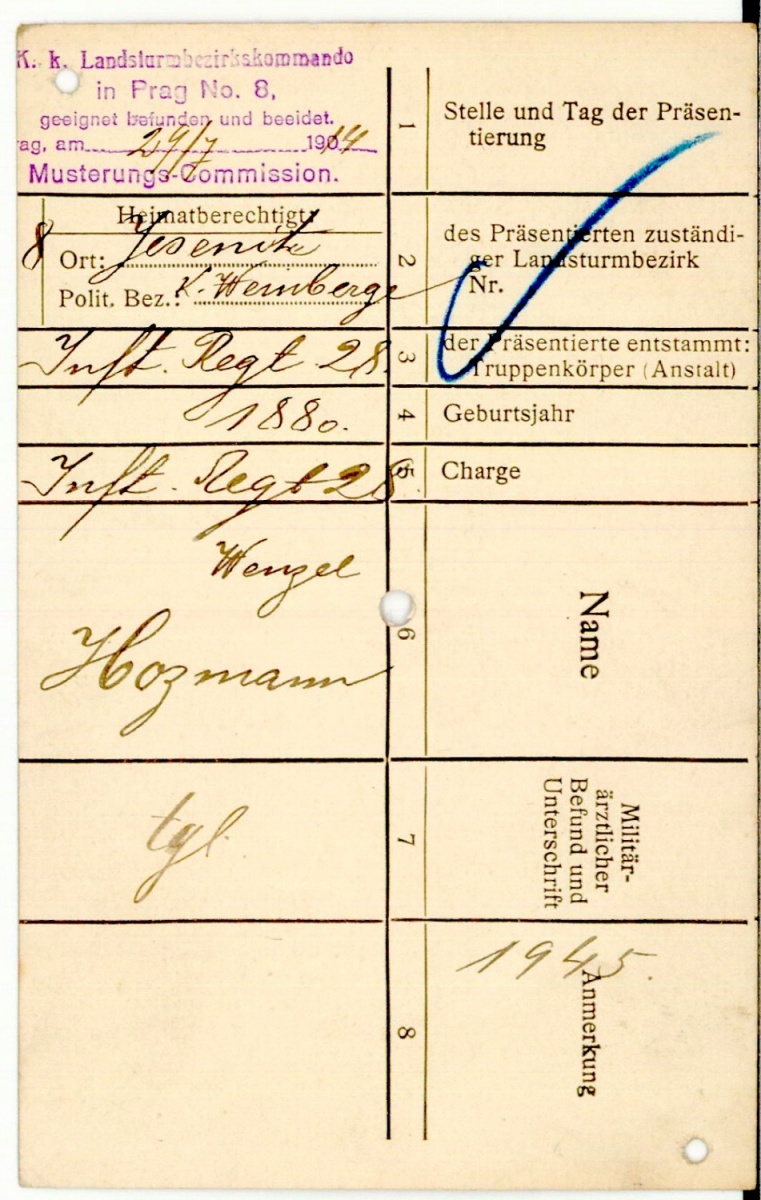 K. k. Landsturmbezirkskommando
in Prag No. 8,
geeignet befunden und beeidet.
rag, am 29/7 1914
Musterungs-Commission.
1
Stelle und Tag der Präsen-
tierung
Heimatberechtigt
8
Ort: Jesenitz
Polit. Bez.: K. Weinberge
2
des Präsentierten zuständi-
ger Landsturmbezirk
Nr.
Inft. Regt 28.
3
der Präsentierte entstammt:
Truppenkörper (Anstalt)
1880.
4
Geburtsjahr
Inft. Regt 28
5
Charge
Wenzel
Hozmann
6
Name
tgl.
7
Militär-
ärztlicher
Befund und
Unterschrift
8
1945.
Anmerkung